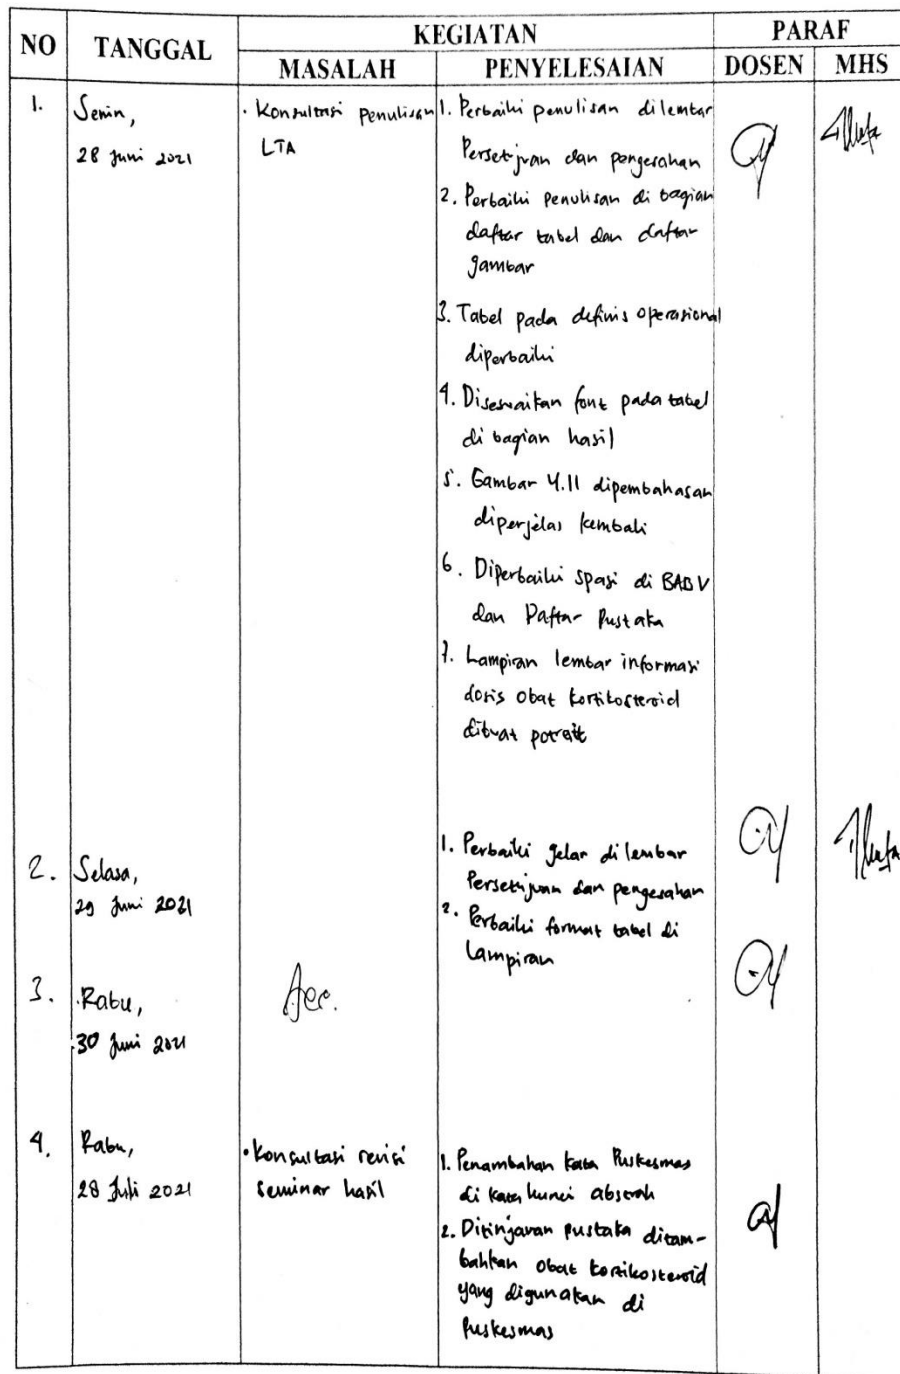 NO TANGGAL KEGIATAN PARAF
MASALAH PENYELESAIAN DOSEN MHS
1. Senin,
28 Juni 2021
• Konsultasi penulisan
LTA
1. Perbaiki penulisan dilembar
Persetujuan dan pengesahan
2. Perbaiki penulisan di bagian
daftar tabel dan daftar
gambar
3. Tabel pada definis operasional
diperbaiki
4. Disesuaikan font pada tabel
di bagian hasil
5. Gambar 4.11 dipembahasan
diperjelas kembali
6. Diperbaiki spasi di BAB V
dan Daftar Pustaka
7. Lampiran lembar informasi
dosis obat kortikosteroid
dibuat potrait
2. Selasa,
29 Juni 2021
1. Perbaiki gelar dilembar
Persetujuan dan pengesahan
2. Perbaiki format tabel di
Lampiran
3. Rabu,
30 Juni 2021
Acc.
4. Rabu,
28 Juli 2021
• Konsultasi revisi
seminar hasil
1. Penambahan kata Puskesmas
di kata kunci abstrak
2. Ditinjauan pustaka ditam-
bahkan obat kortikosteroid
yang digunakan di
Puskesmas